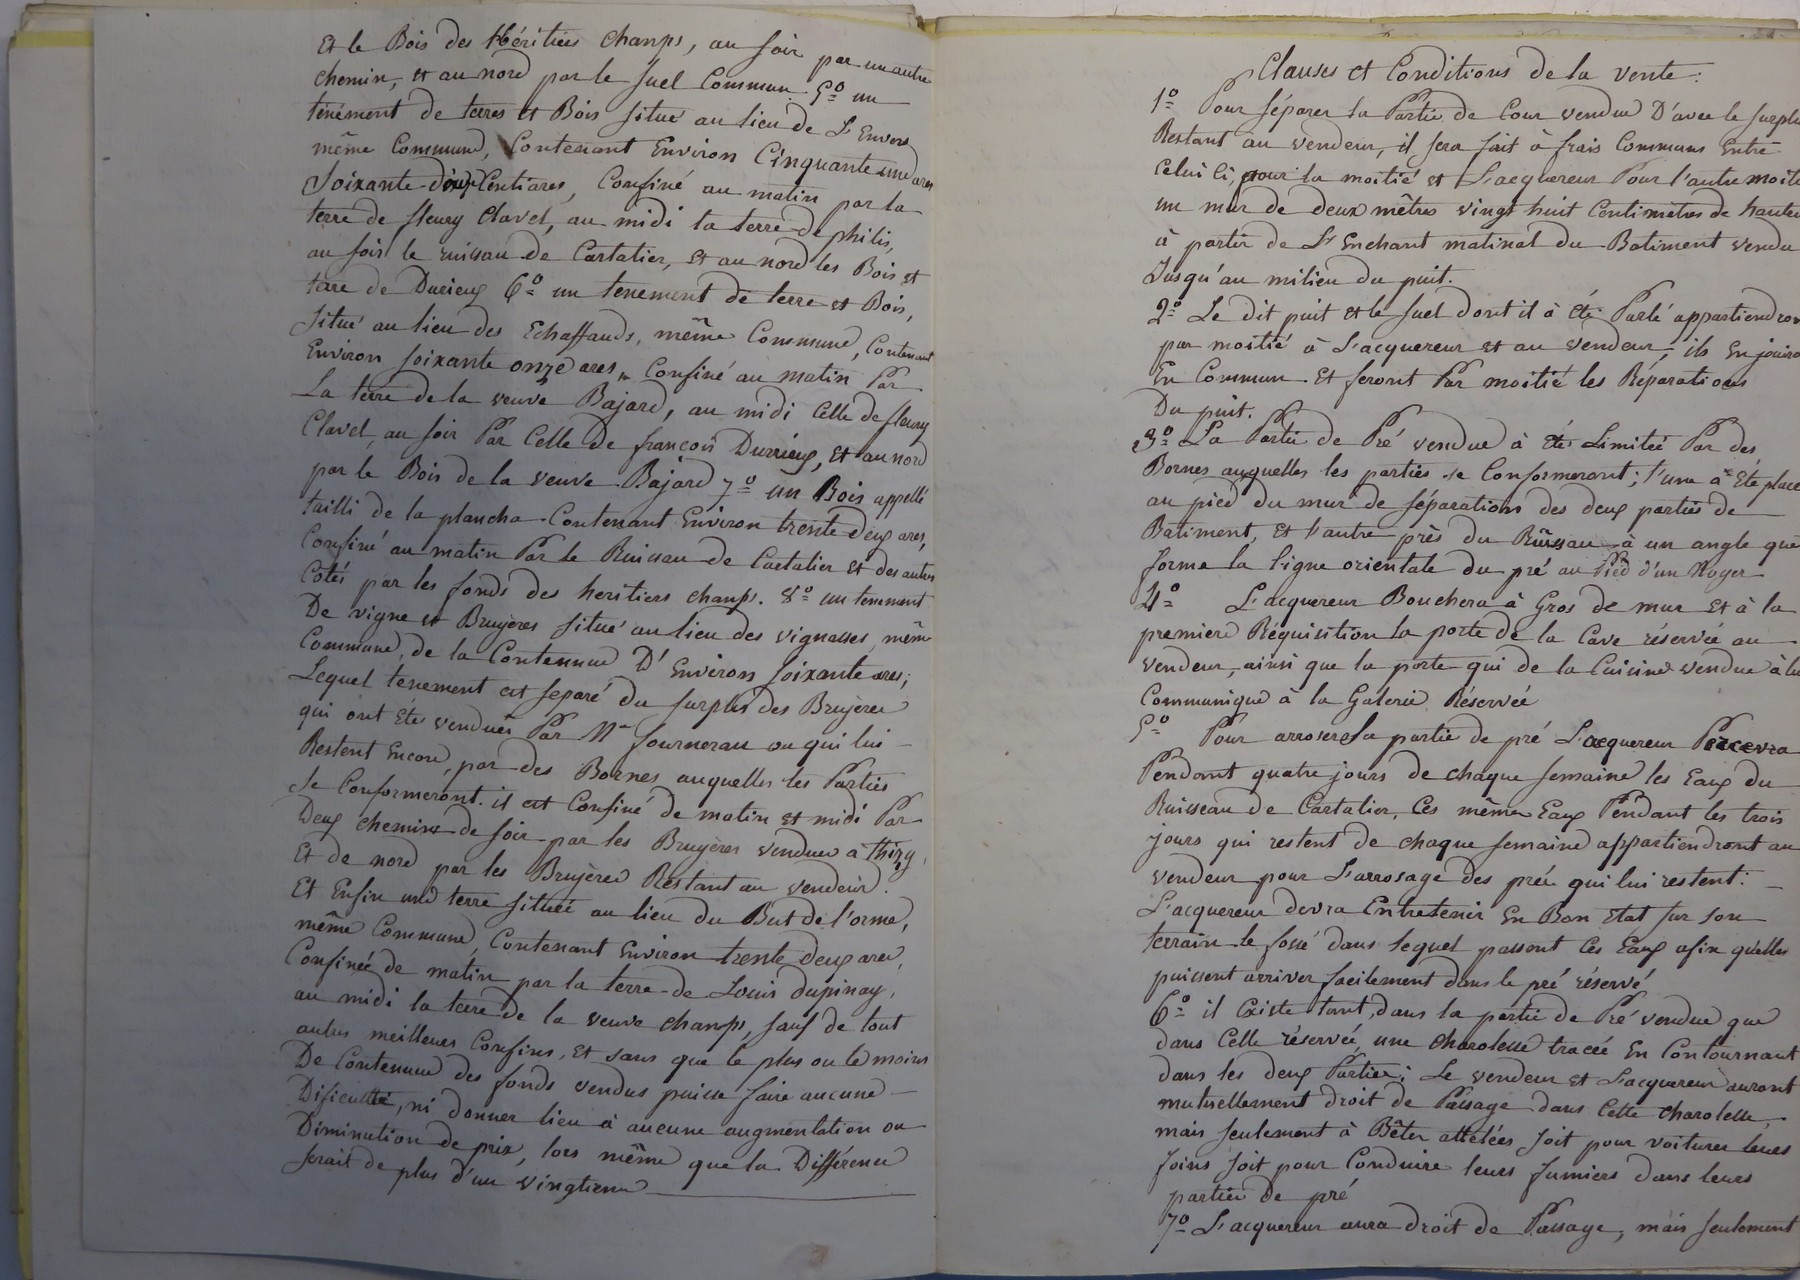 Et le Bois des Héritiers Champs, au soir par un autre
chemin, et au nord par le suel Commun. 5º un
ténément de terres et Bois situé au lieu de L'Envers
même Commune, Contenant Environ Cinquante une ares
Soixante-dix Centiares, Confiné au matin par la
terre de fleury Clavel, au midi la terre de philis,
au soir le ruisseau de Cartalier, et au nord les Bois et
terre de Durieux 6º un tenement de terre et Bois,
situé au lieu des Echaffauds, même Commune, Contenant
Environ soixante onze ares, Confiné au matin Par
La terre de la veuve Bajard, au midi Celle de fleury
Clavel, au soir Par Celle de françois Durrieux, et au nord
par le Bois de la veuve Bajard 7º un Bois appellé
tailli de la plancha Contenant Environ trente deux ares,
Confiné au matin Par le Ruisseau de Cartalier et des autres
Cotés par les fonds des heritiers champs. 8º un tenement
De vigne et Bruyères situé au lieu des vignasses, même
Commune, de la Contenue D'Environ soixante ares;
Lequel tenement est separé du surplus des Bruyères
qui ont étés vendues Par Mr fournerau ou qui lui
Restent Encore, par des Bornes auquelles les Parties
se Conformeront. il est Confiné de matin et midi Par
Deux chemins de soir par les Bruyères vendues a thizy,
Et de nord par les Bruyères Restant au vendeur.
Et Enfin une terre située au lieu du But de l'orme,
même Commune, Contenant Environ trente deux ares,
Confinée de matin par la terre de Louis dupinay,
au midi la terre de la veuve champs, sauf de tout
autres meilleurs Confins, Et sans que le plus ou le moins
De Contenue des fonds vendus puisse faire aucune
Dificulté, ni donner lieu à aucune augmentation ou
Diminution de prix, lors même que la Différence
serait de plus d'un vingtieme
Clauses et Conditions de la vente:
1º Pour séparer la Partie de Cour vendue D'avec le surplu
Restant au vendeur, il sera fait à frais Communs Entre
Celui Ci, pour la moitié et L'acquereur Pour l'autre moiti
un mur de deux mètres vingt huit Centimètres de hauteu
à partir de L'Enchant matinal du Batiment vendu
Jusqu'au milieu du puit.
2º Le dit puit et le suel dont il à été Parlé appartiendron
par moitié à L'acquereur et au vendeur, ils En jouiro
En Commun Et feront Par moitié les Réparations
Du puit.
3º La Partie de Pré vendue à été Limitée Par des
Bornes auquelles les parties se Conformeront; l'une à Eté place
au pied du mur de séparation des deux parties de
Batiment, Et l'autre près du Ruisseau à un angle que
forme la ligne orientale du pré au Pied d'un Noyer
4º L'acquereur Bouchera à Gros de mur et à la
premiere Réquisition la porte de la Cave réservée au
vendeur, ainsi que la porte qui de la Cuisine vendue à lu
Communique à la Galerie Réservée
5º Pour arroser la partie de pré L'acquereur Percevra
Pendant quatre jours de chaque semaine les Eaux du
Ruisseau de Cartalier, Ces mêmes Eaux Pendant les trois
jours qui restent de chaque semaine appartiendront au
vendeur pour L'arrosage des prés qui lui restent:
L'acquereur devra Entretenir En Bon Etat sur son
terrain le fossé dans lequel passent Ces Eaux afin qu'elles
puissent arriver facilement dans le pré réservé
6º il Existe tant, dans la partie de Pré vendue que
dans Celle réservée, une charolesse tracée En Contournant
dans les deux Parties; Le vendeur et L'acquereur auront
mutuellement droit de Passage dans Cette charolesse,
mais seulement à Bêtes attelées soit pour voiturer leurs
foins soit pour Conduire leurs fumiers dans leurs
parties de pré
7º L'acquereur aura droit de Passage, mais seulement